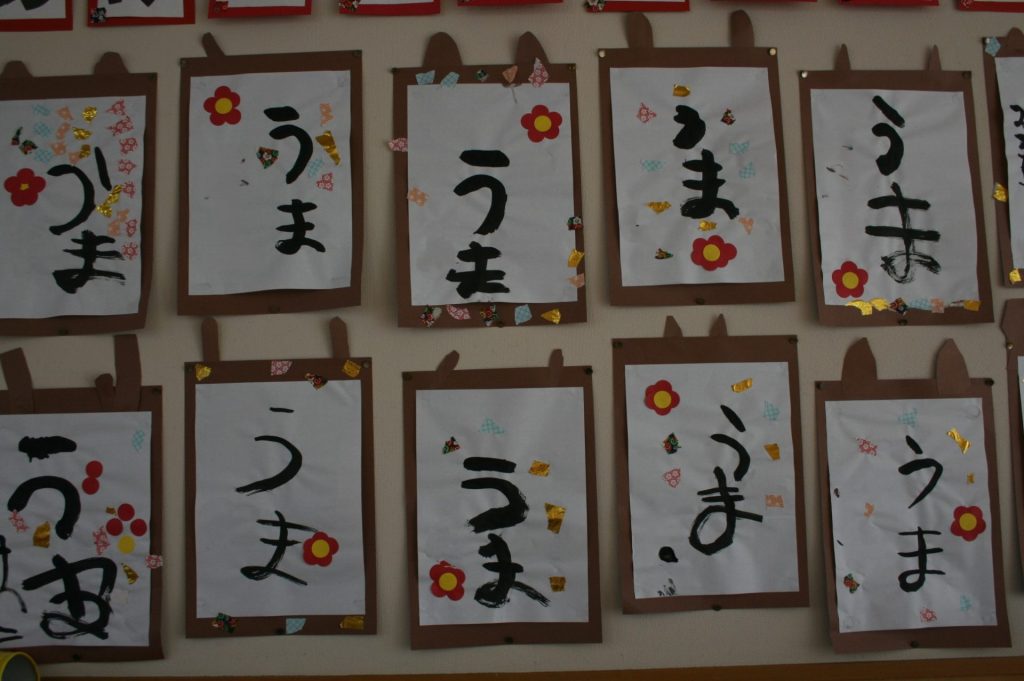 うま
うま
うま
うま
うま
うま
うま
うま
うま
うま